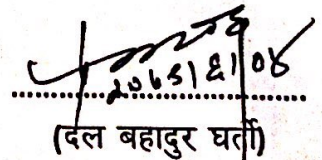 २०६५।६।०४
..............................
(दल बहादुर घर्ती)